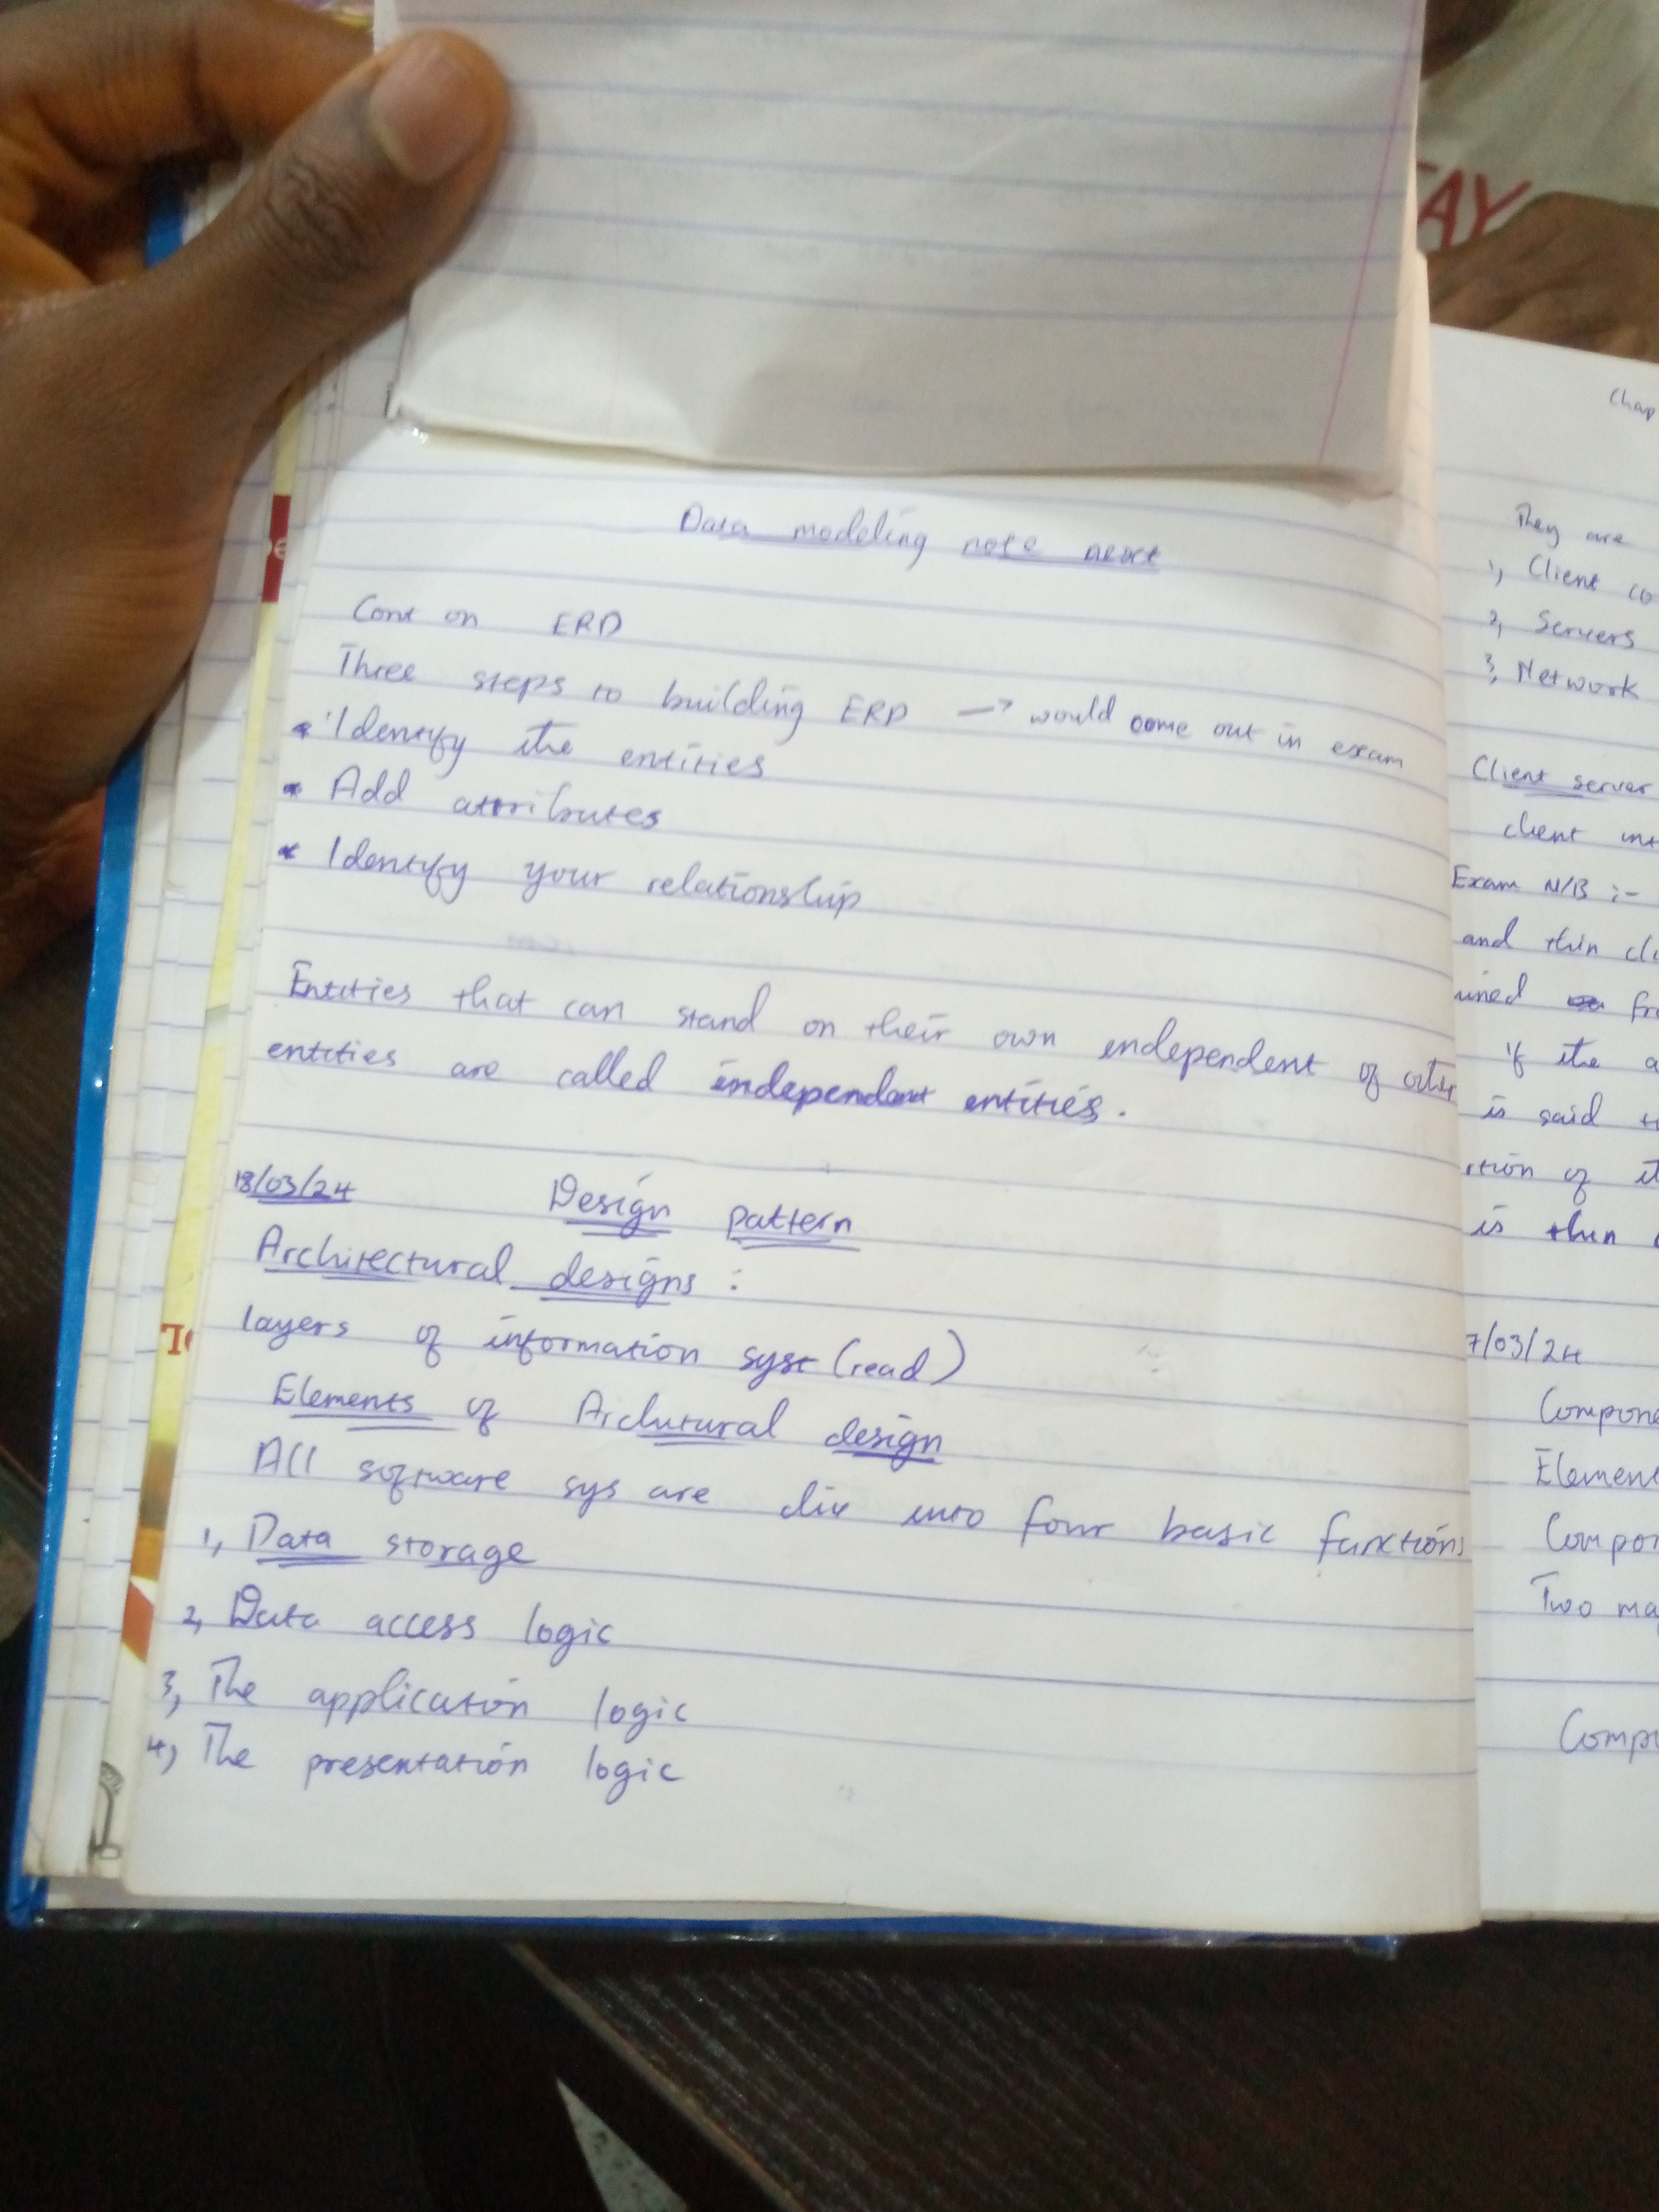 Data modeling note next
Cont on ERD
Three steps to building ERD → would come out in exam
* Identify the entities
* Add attributes
* Identify your relationship
Entities that can stand on their own endependent of other
entities are called independent entities.
18/03/24 Design pattern
Architectural designs :
layers of information syst (read)
Elements of Archutural design
All software sys are div into four basic functions
1, Data storage
2, Data access logic
3, The application logic
4, The presentation logic
Chap
They are
1, Client co
2, Servers
3, Network
Client server
client int
Exam N/B :-
and thin cli
uned fro
if the a
is said t
rtion of it
is then
7/03/24
Compone
Element
Compor
Two ma
Comp
AY